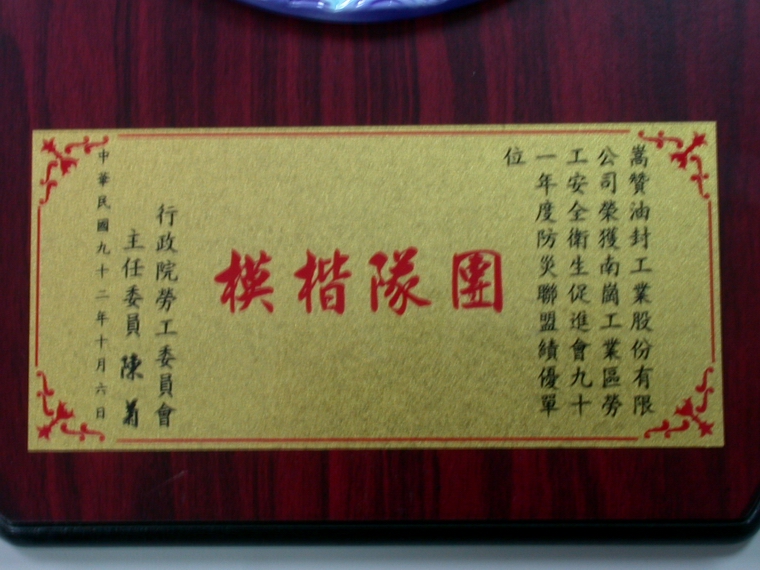 嵩贊油封工業股份有限
公司榮獲南崗工業區勞
工安全衛生促進會九十
一年度防災聯盟績優單
位
團隊楷模
行政院勞工委員會
主任委員 陳菊
中華民國九十二年十月六日